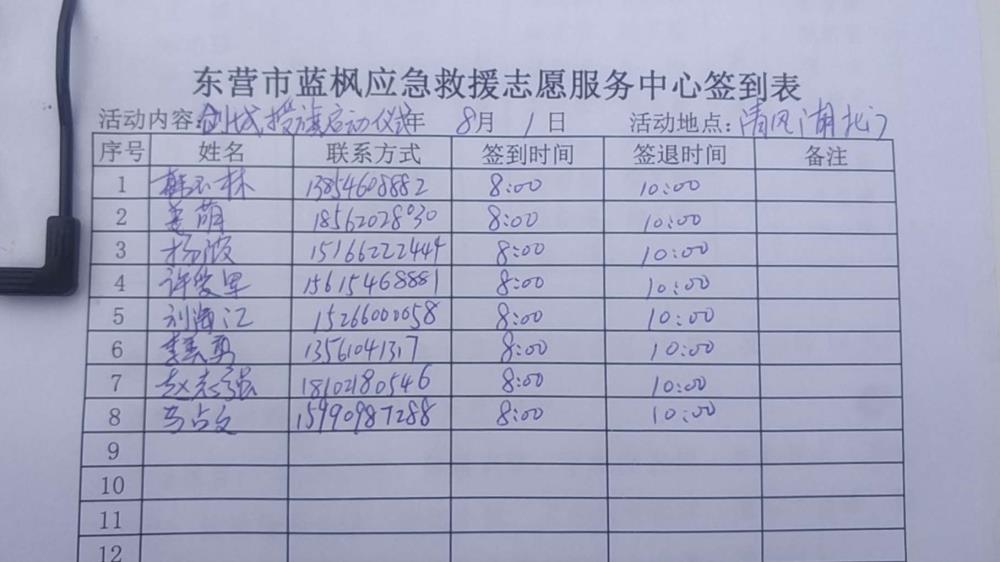 东营市蓝枫应急救援志愿服务中心签到表
活动内容:创城授旗启动仪式年 8月 1日 活动地点:清风湖北门
序号 姓名 联系方式 签到时间 签退时间 备注
1 林 13854608882 8:00 10:00
2 姜萌 18562028030 8:00 10:00
3 杨波 15166222444 8:00 10:00
4 许爱军 15615468881 8:00 10:00
5 刘海江 15266000058 8:00 10:00
6 李勇 13561041317 8:00 10:00
7 赵志强 18102180546 8:00 10:00
8 马占文 15990987288 8:00 10:00
9
10
11
12